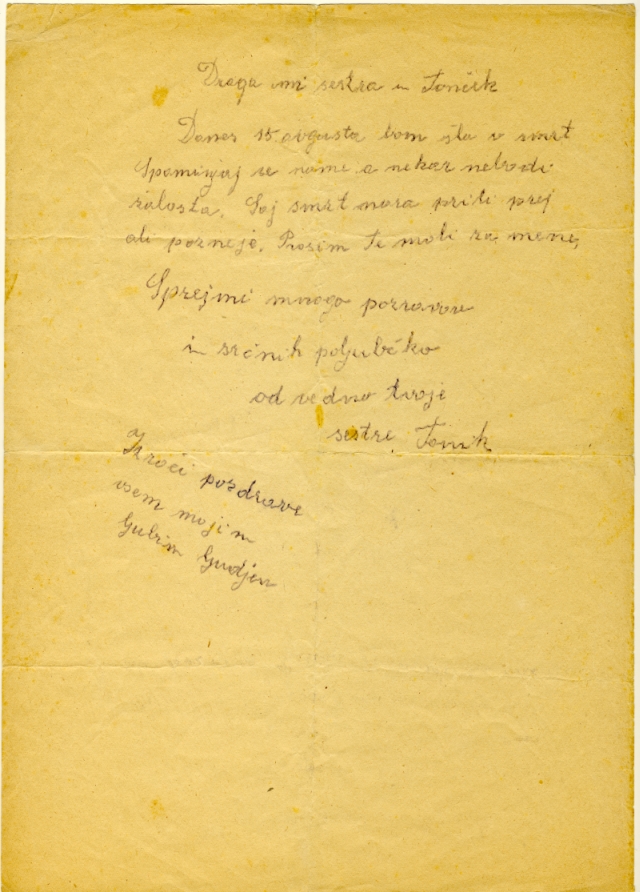 Draga mi sestra in Tončik
Danes 15 avgusta bom šla v smrt
Spominjaj se name a nekar nebodi
žalosta. Saj smrt mora priti prej
ali pozneje. Prosim Te moli za mene,
Sprejmi mnogo pozravov
in srčnih poljubčko
od vedno tvoje
sestre
Izroči pozdrave
vsem mojim